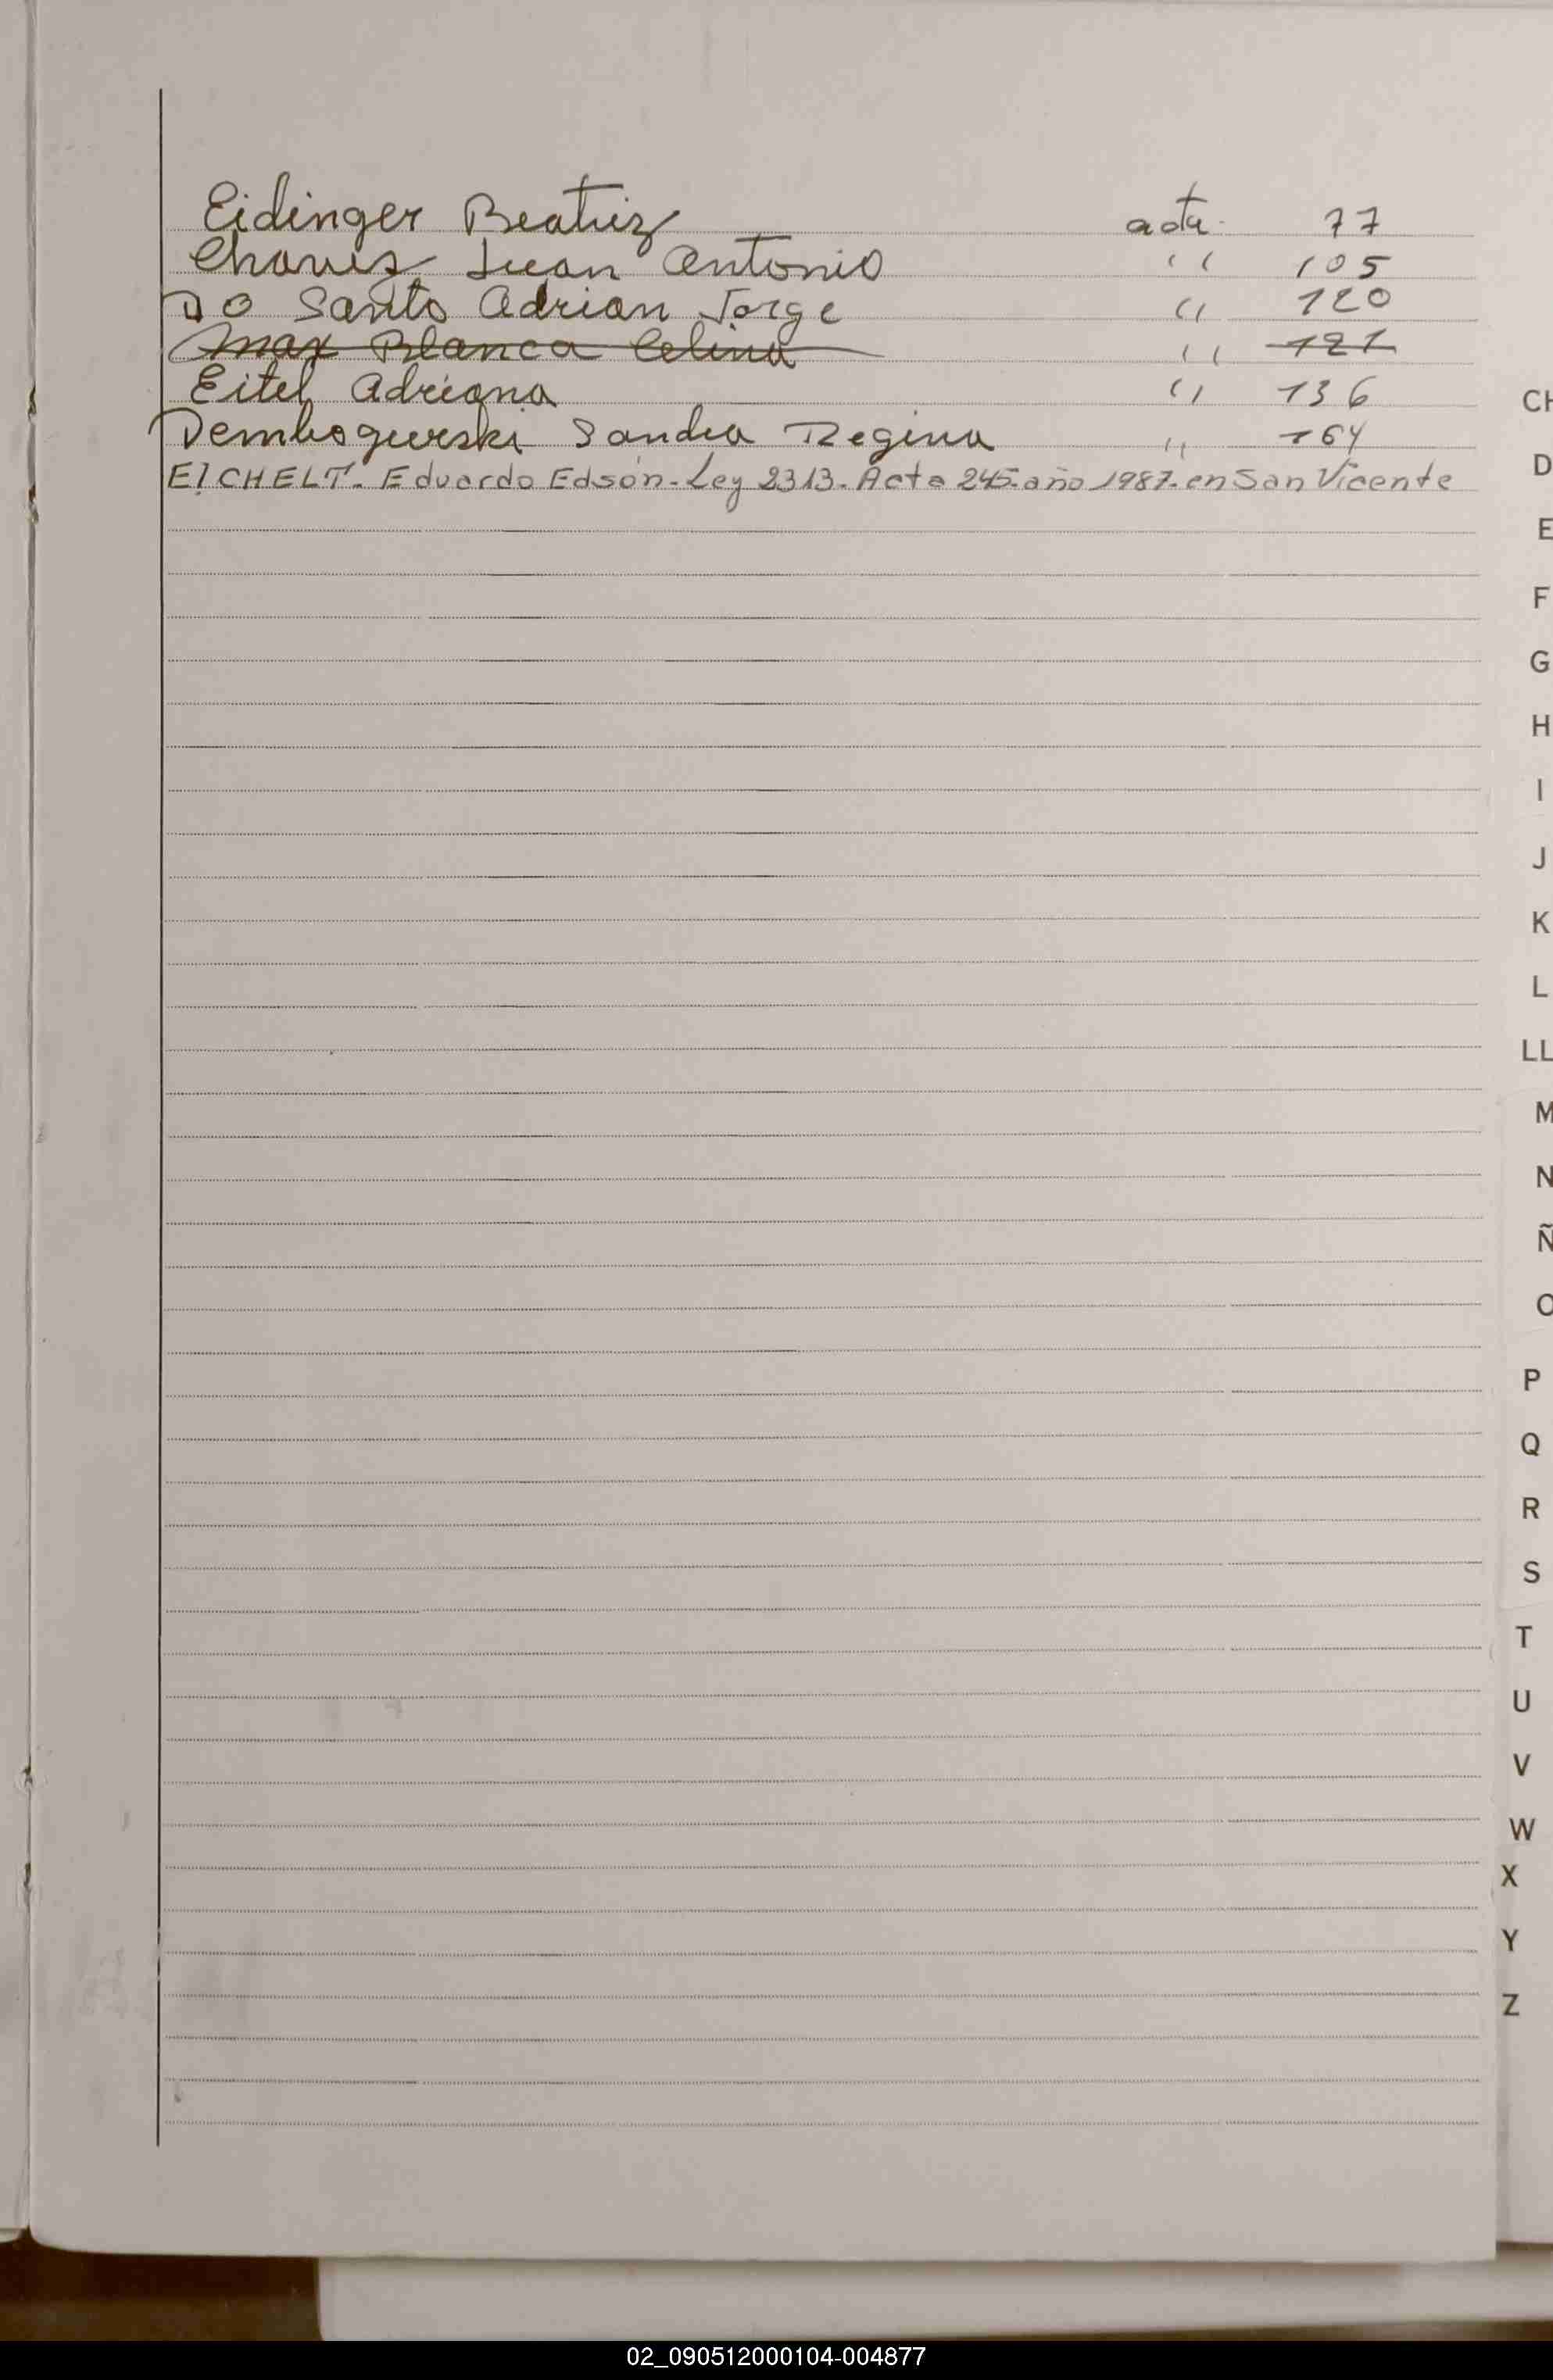 Eidinger Beatriz acta. 77
Chavez Juan Antonio " 105
Do Santo Adrian Jorge " 120
Max Blanca Celina " 121
Eitel Adriana " 136
Dembogurski Sandra Regina " 164
EICHELT. Eduardo Edsón. Ley 2313. Acta 245. año 1987. en San Vicente
CH
D
E
F
G
H
I
J
K
L
LL
M
N
Ñ
O
P
Q
R
S
T
U
V
W
X
Y
Z
02_090512000104-004877